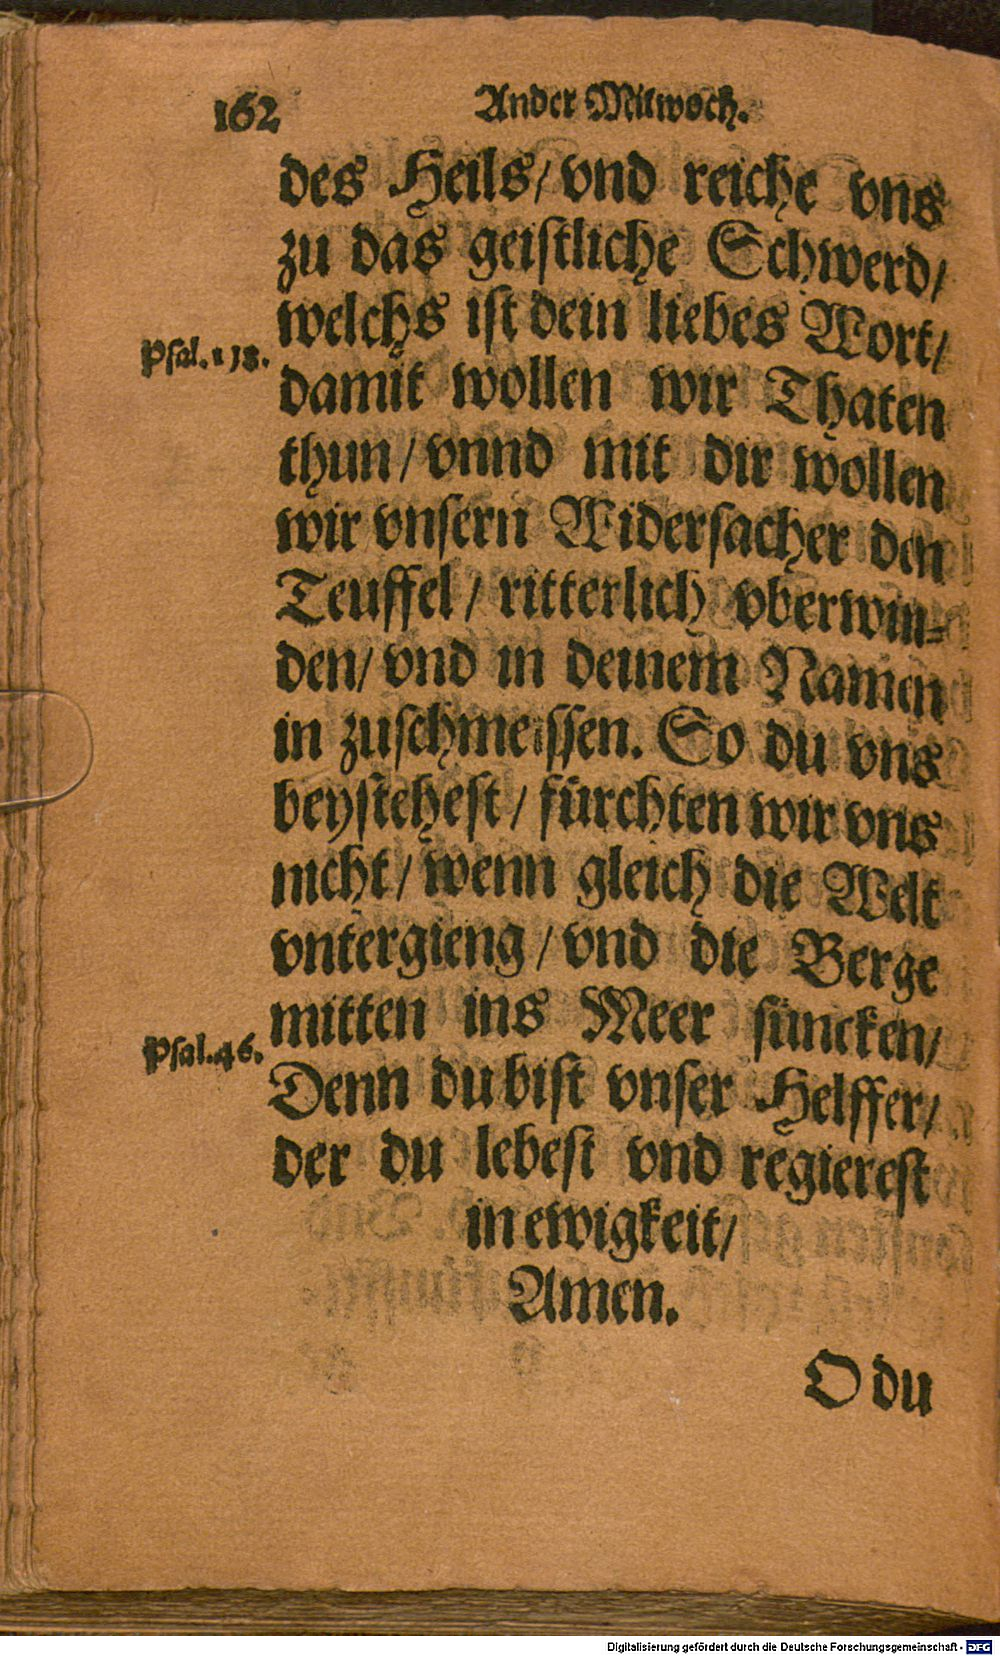 162
Ander Mitwoch.
des Heils/ vnd reiche vns
zu das geistliche Schwerd/
welchs ist dein liebes Wort/
Psal. 118.
damit wollen wir Thaten
thun/ vnnd mit dir wollen
wir vnsern Widersacher den
Teuffel/ ritterlich vberwin-
den/ vnd in deinem Namen
in zuschmeissen. So du vns
beystehest/ fürchten wir vns
nicht/ wenn gleich die Welt
vntergieng/ vnd die Berge
mitten ins Meer süncken/
Psal. 46.
Denn du bist vnser Helffer/
der du lebest vnd regierest
in ewigkeit/
Amen.
O du
Digitalisierung gefördert durch die Deutsche Forschungsgemeinschaft - DFG